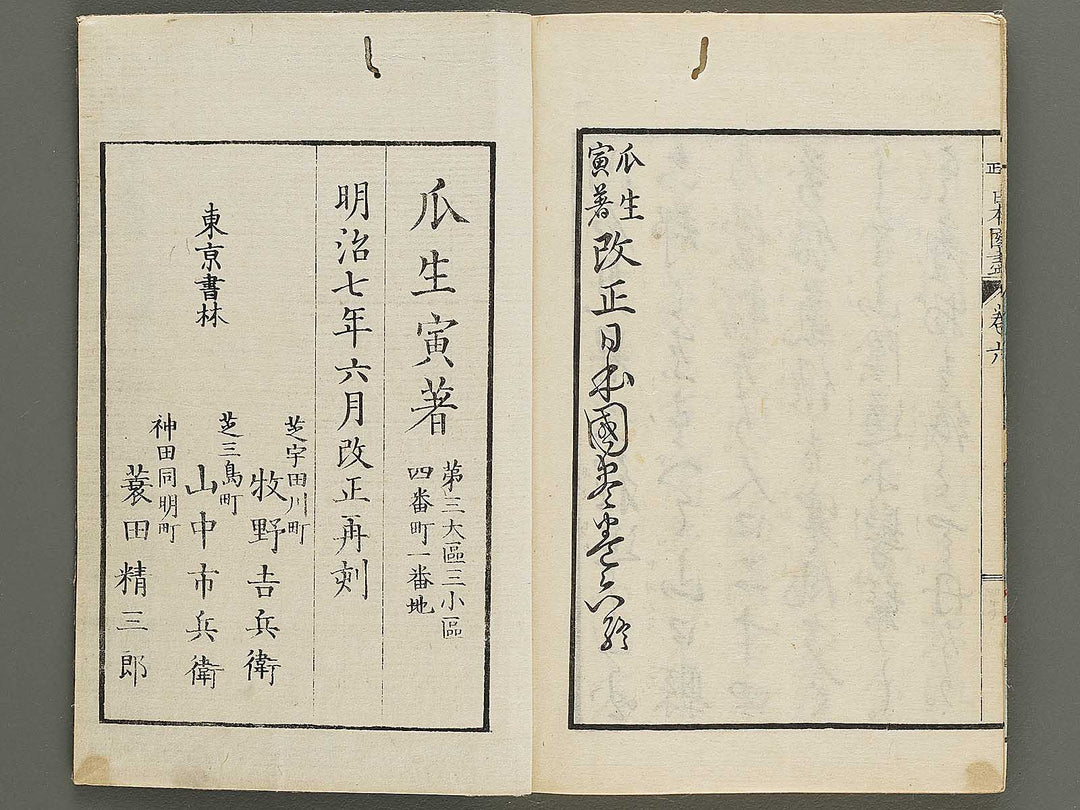 正 日本國盡 卷六
瓜生
寅著
改正日本國盡卷六終
瓜生寅著
第三大區三小區
四番町一番地
明治七年六月改正再刻
東京書林
芝宇田川町
牧野吉兵衛
芝三島町
山中市兵衛
神田同明町
蓑田精三郎